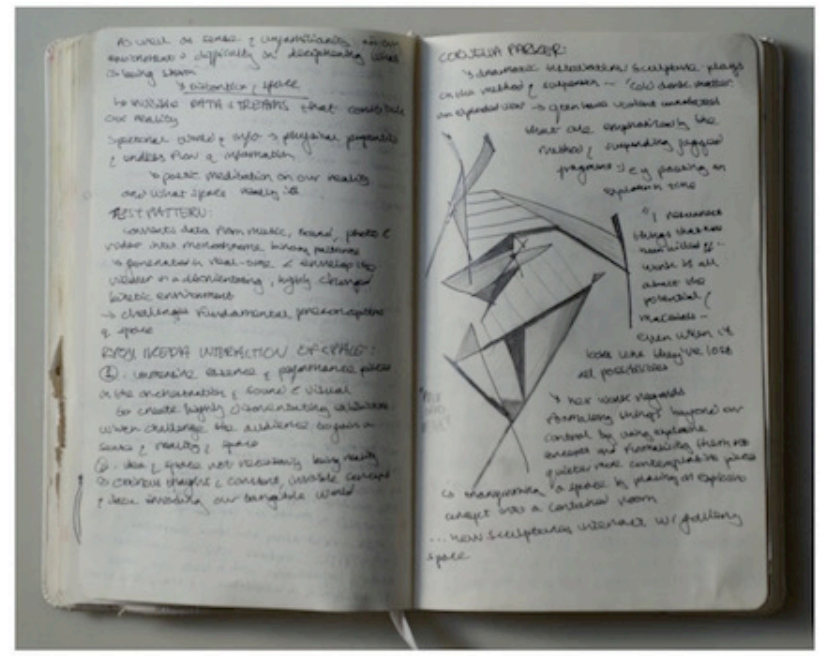 As well as sense & unfamiliarity in our
environment & difficulty in deciphering what
is being shown
↳ distortion & space
↳ invisible DATA STREAMS that constitute
our reality
world & info → physical properties
& endless flow of information
↳ poetic meditation on our reality
and what space really is
TEST PATTERN:
converts data from music, sound, photo &
video into monochrome binary patterns
↳ generated in real-time & envelop the
in a disorientating, highly charged
environment
→ challenges fundamental preconceptions
of space
RYOJI IKEDA INTERACTION OF SPACE:
immersive essence & performance
in the orchestration of sound & visual
to create highly disorientating
when challenge the audience to gain a
sense of reality & space
② idea of space not necessarily being reality
constant, invisible concept
& invading our tangible world
CORNELIA PARKER:
↳ dramatic installation/sculpture plays
on the method of suspension - "cold dark matter:
an exploded view" → often have violent
that are emphasised by the
method of suspending jagged
fragments e.g. pausing an
explosion time
"I resurrect
things that have
been killed off...
work is all
about the
potential of
materials -
even when it
looks like they've lost
all possibilities
↳ her work regards
formalising things beyond our
control by using explosive
and formalising them into
quieter more contemplative pieces
↳ a space by placing an explosive
concept into a contained room
... how sculptures interact w/ gallery
space